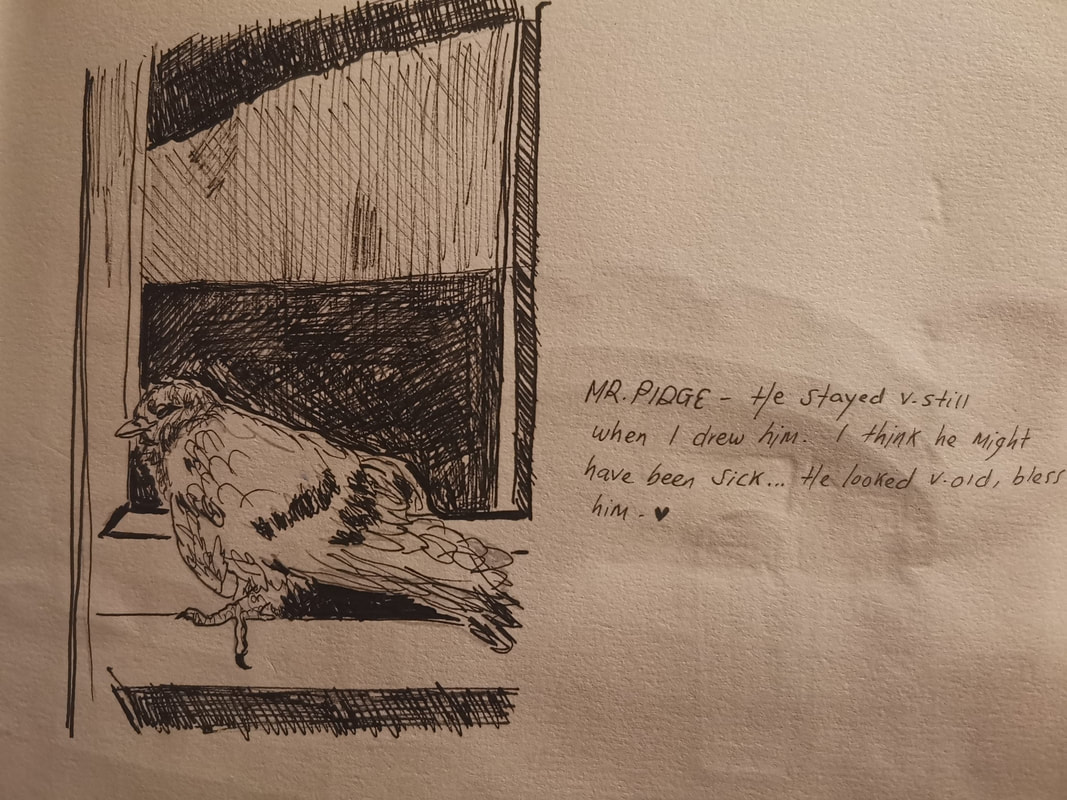 MR. PIDGE - He stayed v. still
when I drew him. I think he might
have been sick... He looked v. old, bless
him. ♥